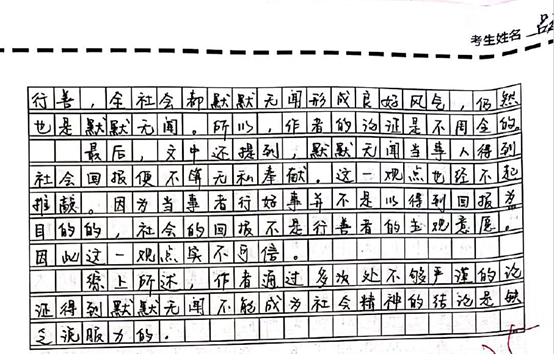 考生姓名
行善，全社会都默默无闻形成良好风气，仍然
也是默默无闻。所以，作者的论证是不周全的。
最后，文中还提到，默默无闻当事人得到
社会回报便不算无私奉献。这一观点也经不起
推敲。因为当事者行好事并不是以得到回报为
目的的，社会的回报不是行善者的主观意愿。
因此这一观点实不可信。
综上所述，作者通过多次处不够严谨的论
证得到默默无闻不能成为社会精神的结论是缺
乏说服力的。